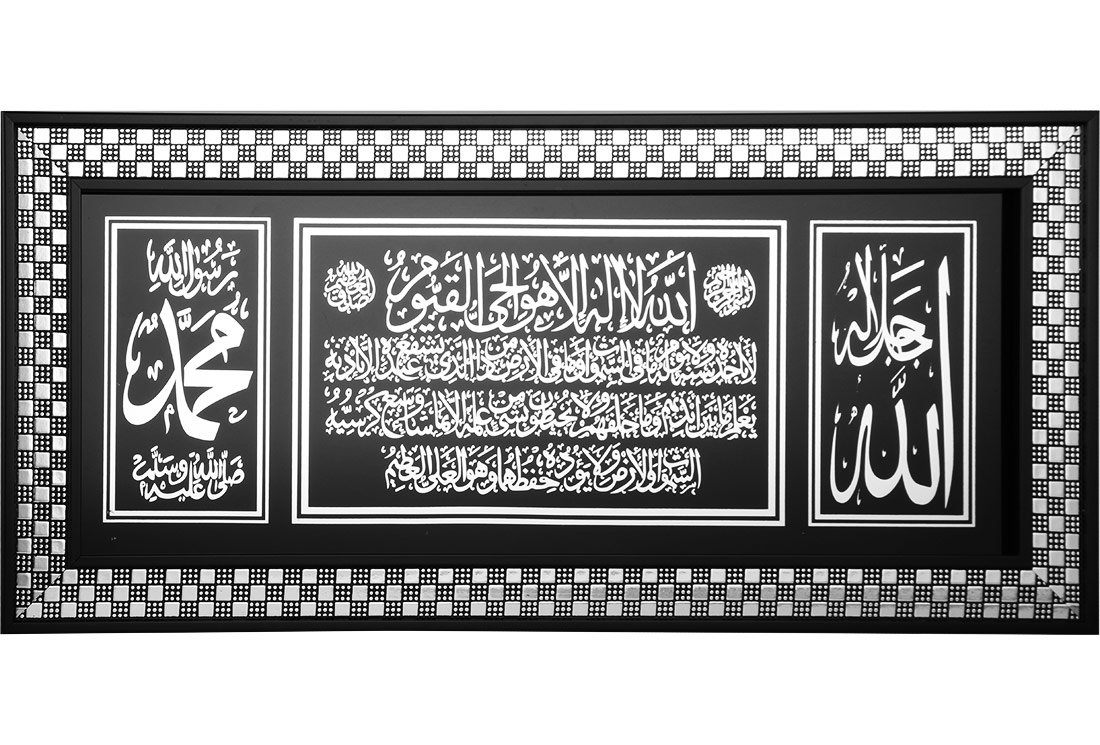 الله
جل جلاله
بسم الله الرحمن الرحيم
اللَّهُ لَا إِلَٰهَ إِلَّا هُوَ الْحَيُّ الْقَيُّومُ
صدق الله العظيم
لَا تَأْخُذُهُ سِنَةٌ وَلَا نَوْمٌ لَهُ مَا فِي السَّمَوَاتِ وَمَا فِي الْأَرْضِ مَنْ ذَا الَّذِي يَشْفَعُ عِنْدَهُ إِلَّا بِإِذْنِهِ
يَعْلَمُ مَا بَيْنَ أَيْدِيهِمْ وَمَا خَلْفَهُمْ وَلَا يُحِيطُونَ بِشَيْءٍ مِنْ عِلْمِهِ إِلَّا بِمَا شَاءَ وَسِعَ كُرْسِيُّهُ
السَّمَوَاتِ وَالْأَرْضَ وَلَا يَئُودُهُ حِفْظُهُمَا وَهُوَ الْعَلِيُّ الْعَظِيمُ
رَسُولُ اللَّهِ
مُحَمَّد
صَلَّى اللَّهُ عَلَيْهِ وَسَلَّمَ